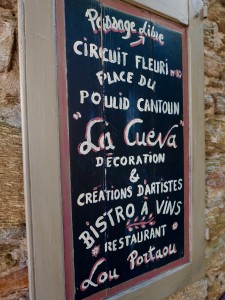 Passage Libre
CIRCUIT FLEURI N°10
PLACE DU
POULID CANTOUN
"La Cueva"
DÉCORATION
&
CRÉATIONS D'ARTISTES
BISTRO À VINS
RESTAURANT
Lou Portaou